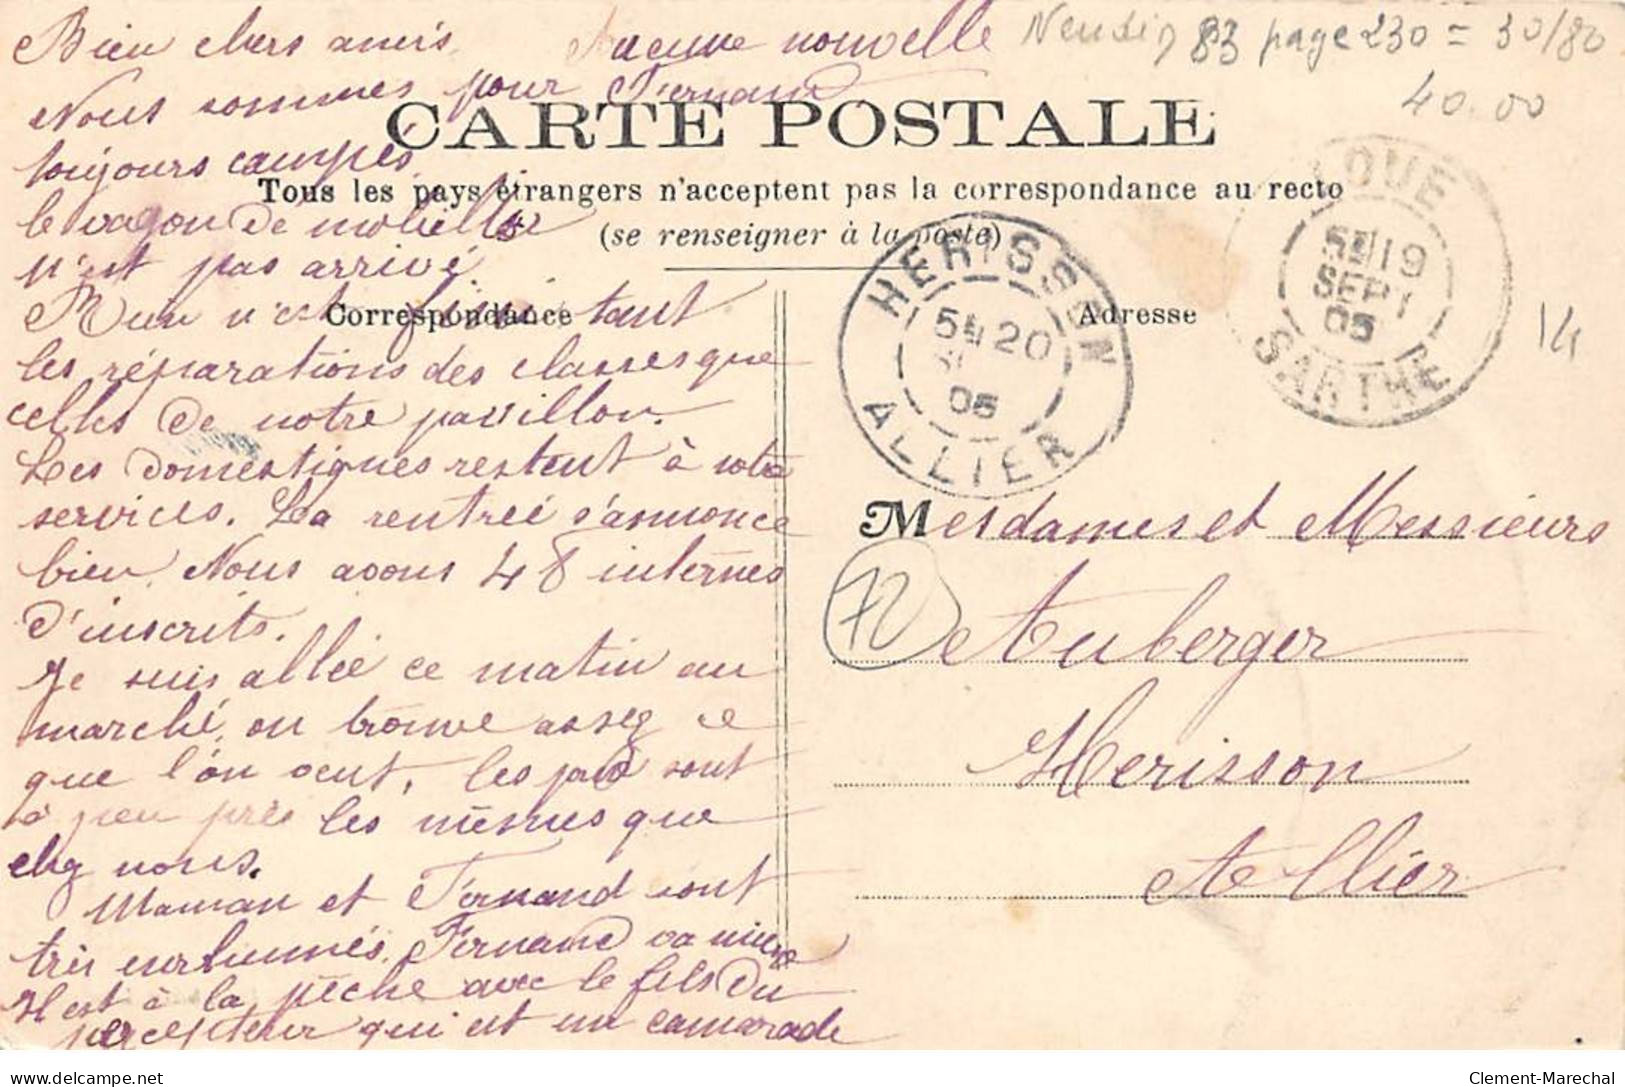 Bien chers amis. Aucune nouvelle
Neudin 83 page 230 = 30/80
40.00
Nous sommes pour Fernand
CARTE POSTALE
toujours campés.
Tous les pays étrangers n'acceptent pas la correspondance au recto
(se renseigner à la poste)
le vagon de mobilier
n'est pas arrivé
Correspondance
Adresse
Rien n'est fini tant
les réparations des classes que
celles de notre pavillon.
Les domestiques restent à votre
services. La rentrée s'annonce
bien. Nous avons 48 internes
d'inscrits.
Je suis allée ce matin au
marché, on trouve assez ce
que l'on veut, les prix sont
à peu près les mêmes que
chez nous.
Maman et Fernand sont
très enrhumés. Fernand va mieux
Il est à la pêche avec le fils du
percepteur qui est un camarade
LOUÉ
5E 19
SEPT
05
SARTHE
HERISSON
5E 20
05
ALLIER
14
72
Mesdames et Messieurs
Auberger
Herisson
Allier
Clement-Marechal